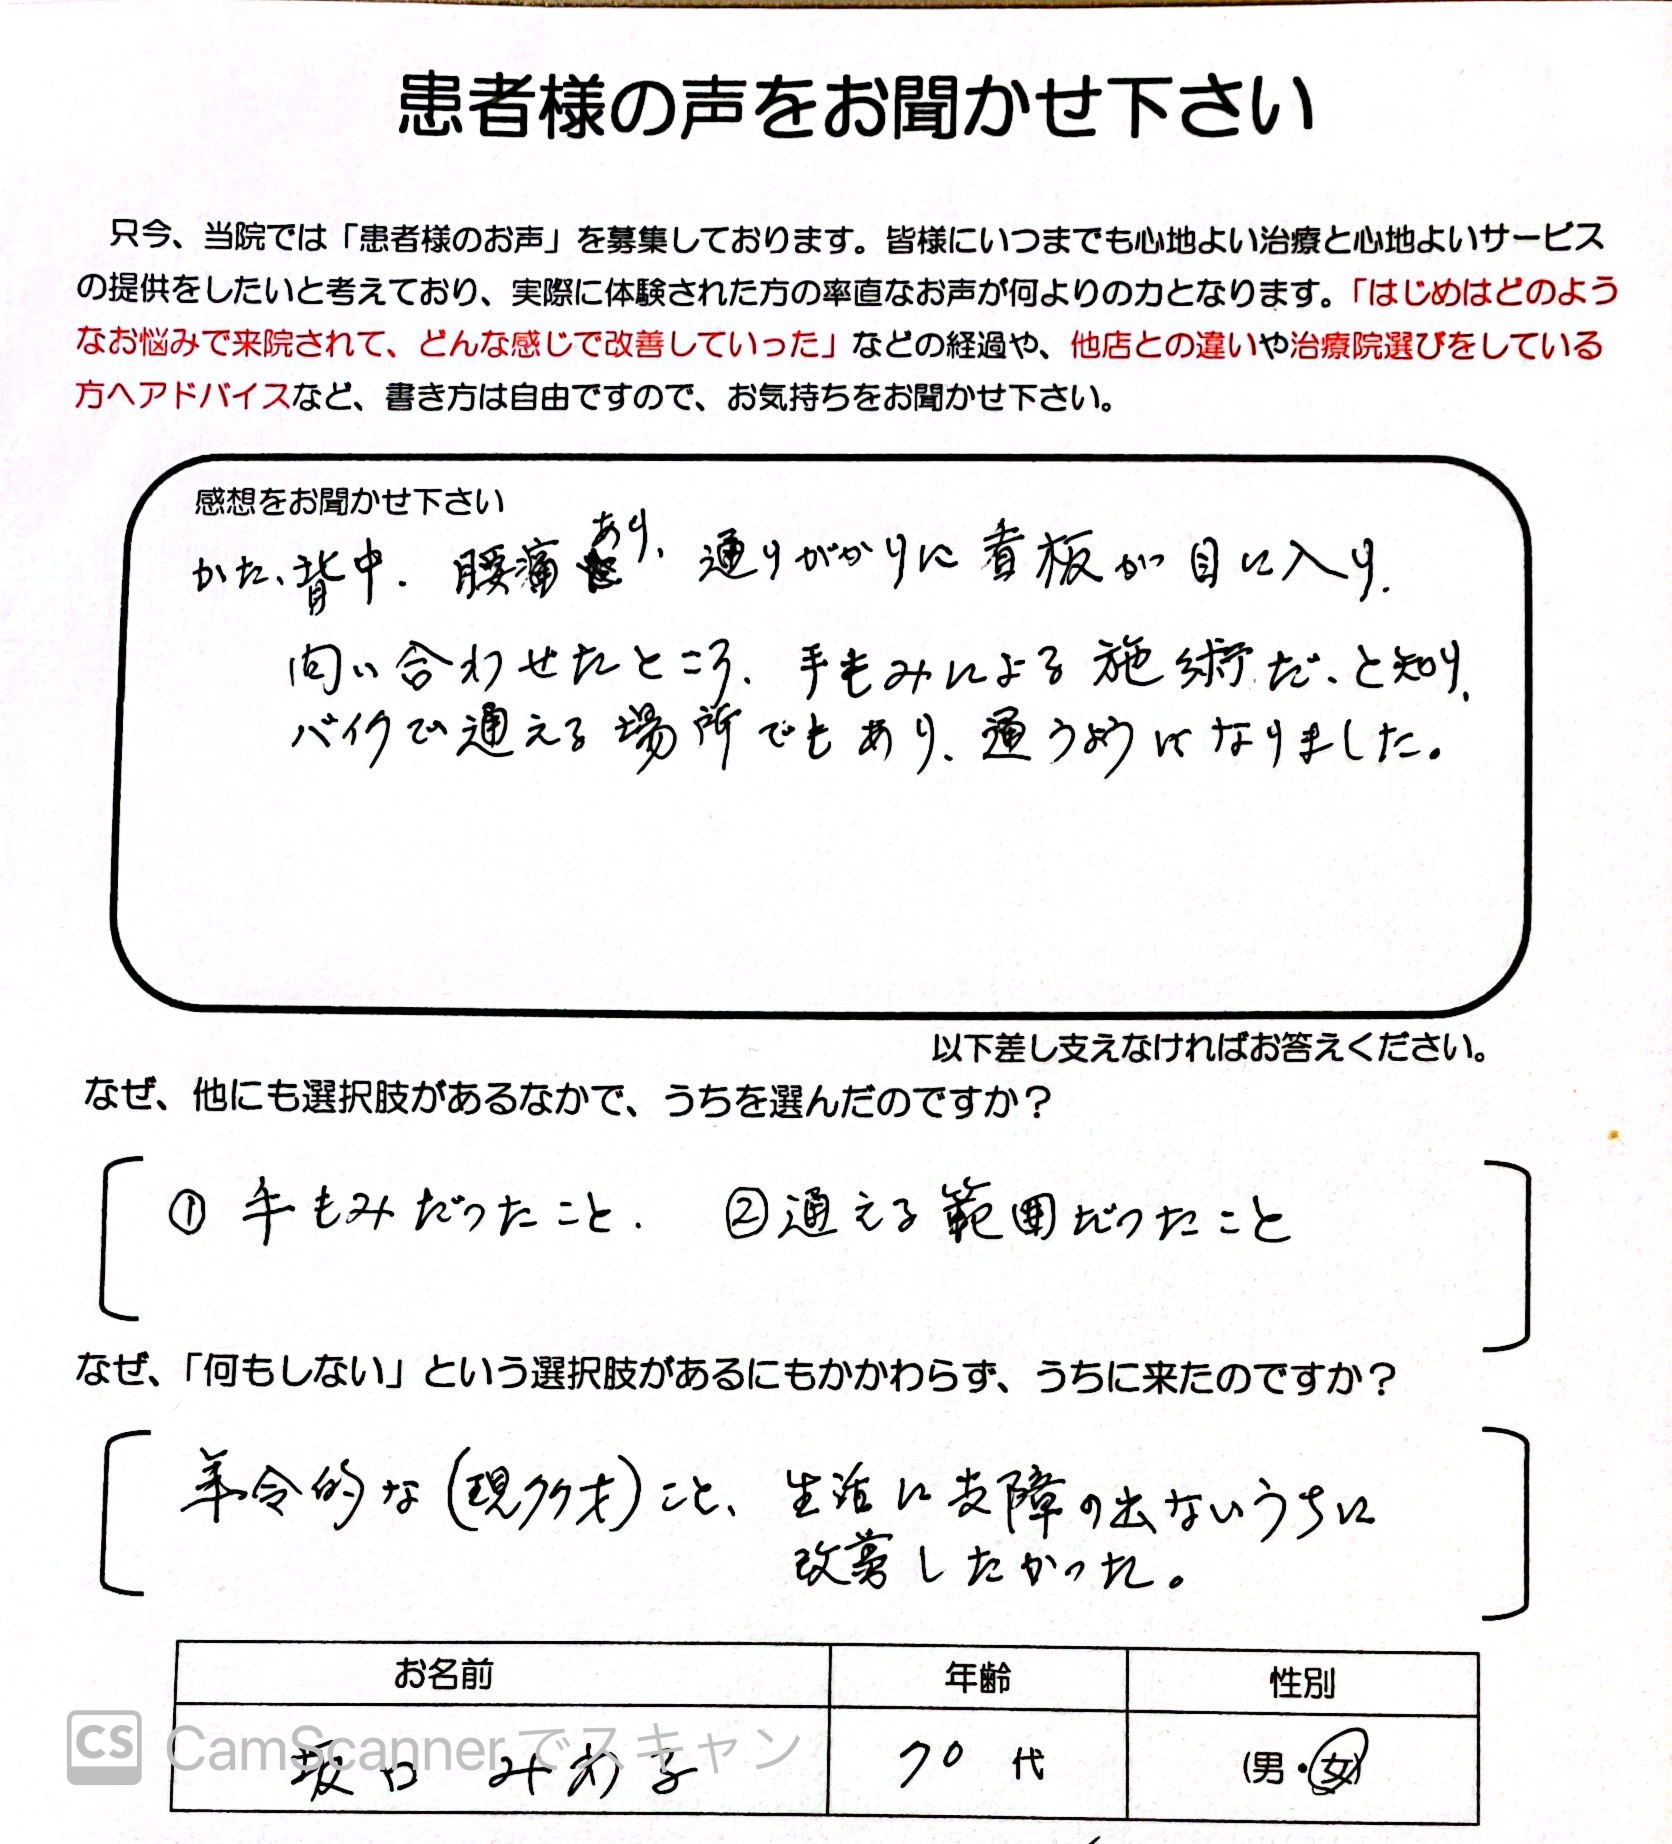 患者様の声をお聞かせ下さい
只今、当院では「患者様のお声」を募集しております。皆様にいつまでも心地よい治療と心地よいサービス
の提供をしたいと考えており、実際に体験された方の率直なお声が何よりの力となります。「はじめはどのよう
なお悩みで来院されて、どんな感じで改善していった」などの経過や、他店との違いや治療院選びをしている
方へアドバイスなど、書き方は自由ですので、お気持ちをお聞かせ下さい。
感想をお聞かせ下さい
かた、背中、腰痛あり、通りがかりに看板が目に入り、
問い合わせたところ、手もみによる施術だ、と知り、
バイクで通える場所でもあり、通うようになりました。
以下差し支えなければお答えください。
なぜ、他にも選択肢があるなかで、うちを選んだのですか？
① 手もみだったこと． ②通える範囲だったこと
なぜ、「何もしない」という選択肢があるにもかかわらず、うちに来たのですか？
年令的な(現77才)こと、生活に支障の出ないうちに
改善したかった。
お名前 年齢 性別
坂口 み 子 70 代 (男・女)
CS CamScannerでスキャン